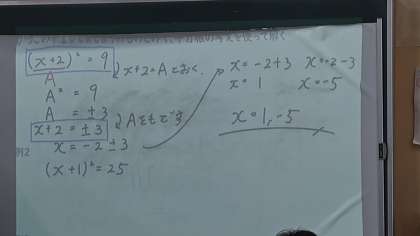 (x+2)² = 9
A
A² = 9
A = ±3
x+2 = ±3
x = -2 ±3
x+2=Aとおく.
Aをもどす
x = -2+3 x = -2-3
x = 1 x = -5
x = 1, -5
例2
(x+1)² = 25